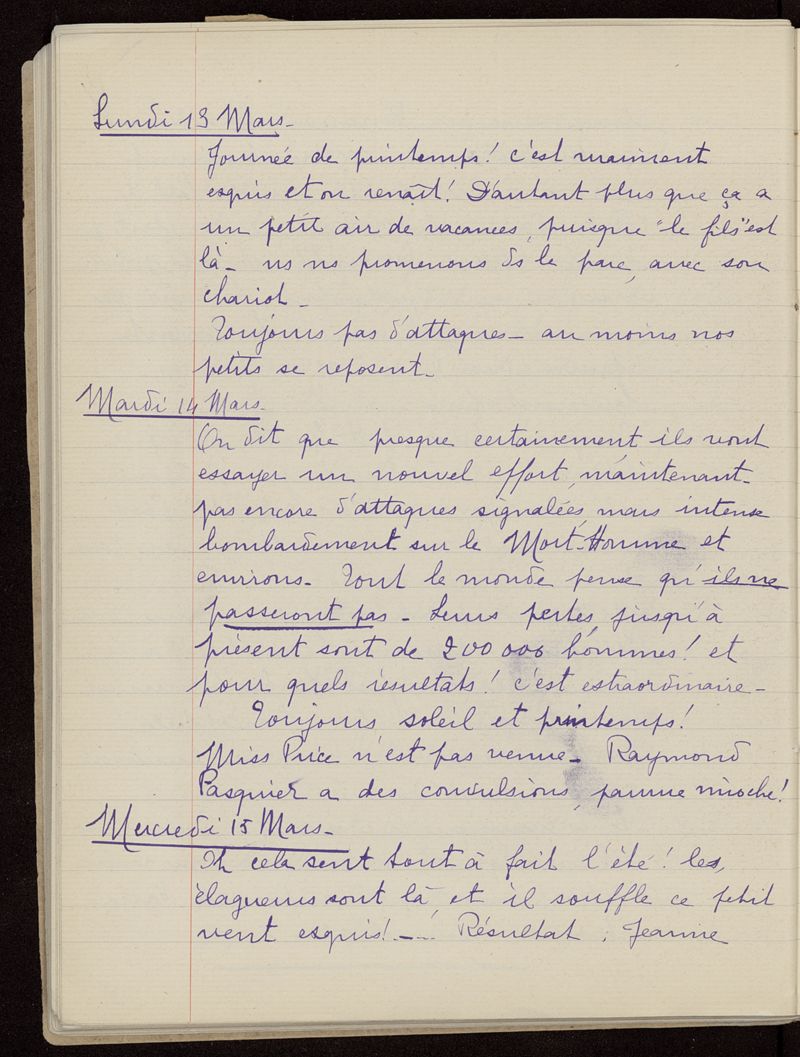 Lundi 13 Mars_
Journée de printemps! c'est vraiment
exquis et on renaît! D'autant plus que ça a
un petit air de vacances, puisque "le fils" est
là_ ns ns promenons ds le parc, avec son
chariot_
Toujours pas d'attaques_ au moins nos
petits se reposent_
Mardi 14 Mars_
On dit que presque certainement ils vont
essayer un nouvel effort, maintenant_
pas encore d'attaques signalées, mais intense
bombardement sur le Mort-Homme et
environs_ Tout le monde pense qu'ils ne
passeront pas_ Leurs pertes, jusqu'à
présent sont de 200 000 hommes! et
pour quels résultats! c'est extraordinaire_
Toujours soleil et printemps!
Miss Price n'est pas venue_ Raymond
Pasquier a des convulsions, pauvre mioche!
Mercredi 15 Mars_
cela sent tout à fait l'été! les
élagueurs sont là, et il souffle ce petit
vent exquis!_ Résultat: Jeanne